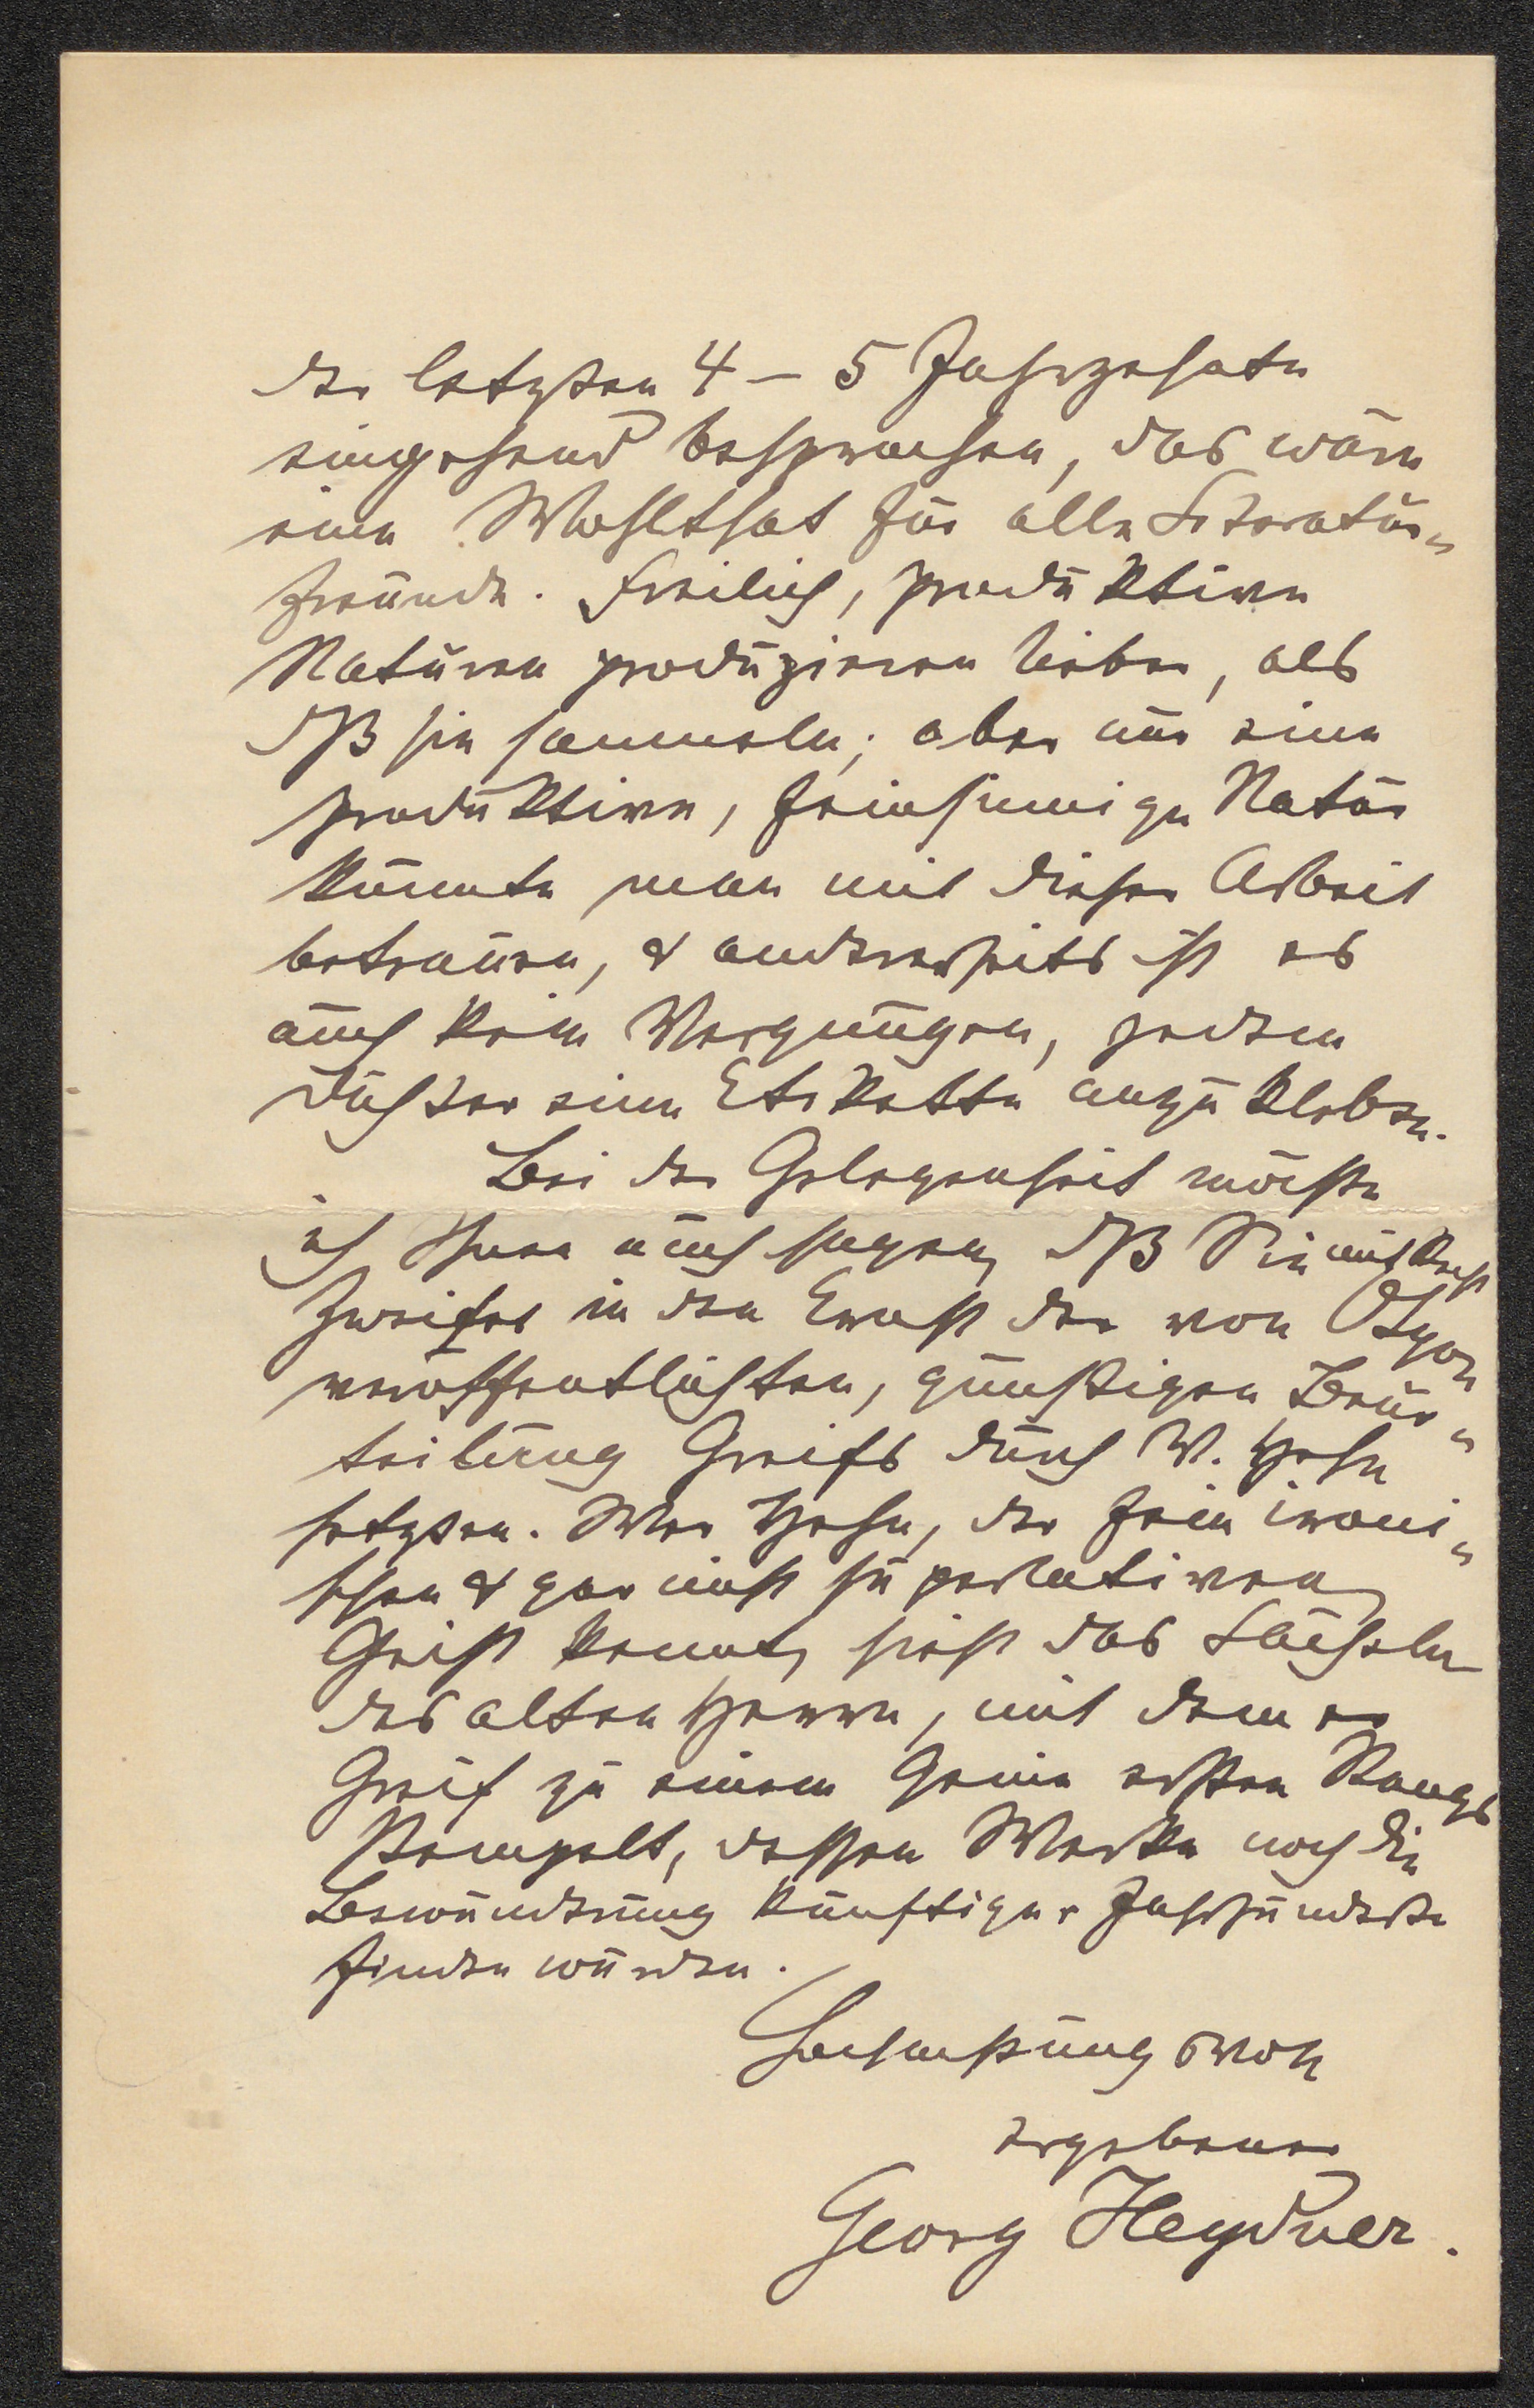 der letzten 4 – 5 Jahrzehnte
eingehend besprechen, das wäre
eine Wohlthat für alle Literatur-
freunde. Freilich, produktive
Naturen produzieren lieber, als
dß sie sammeln; aber nur eine
produktive, feinsinnige Natur
könnte man mit dieser Arbeit
betrauen, & anderseits ist es
auch kein Vergnügen, jedem
Dichter eine Etikette anzukleben.
Bei der Gelegenheit möchte
ich Ihnen auch sagen, dß Sie mit Recht
Zweifel in den Ernst der von Lyon
veröffentlichten, günstigen Beur-
teilung Greifs durch V. Hehn
setzten. Wer Hehn, den fein ironi-
schen & gar nicht superlativen
Geist kennt, sieht das Lächeln
des alten Herrn, mit dem er
Greif zu einem Genie ersten Rangs
stempelt, dessen Werke noch die
Bewunderung künftiger Jahrhunderte
finden würden.
Hochachtungsvoll
ergebener
Georg Heydner.